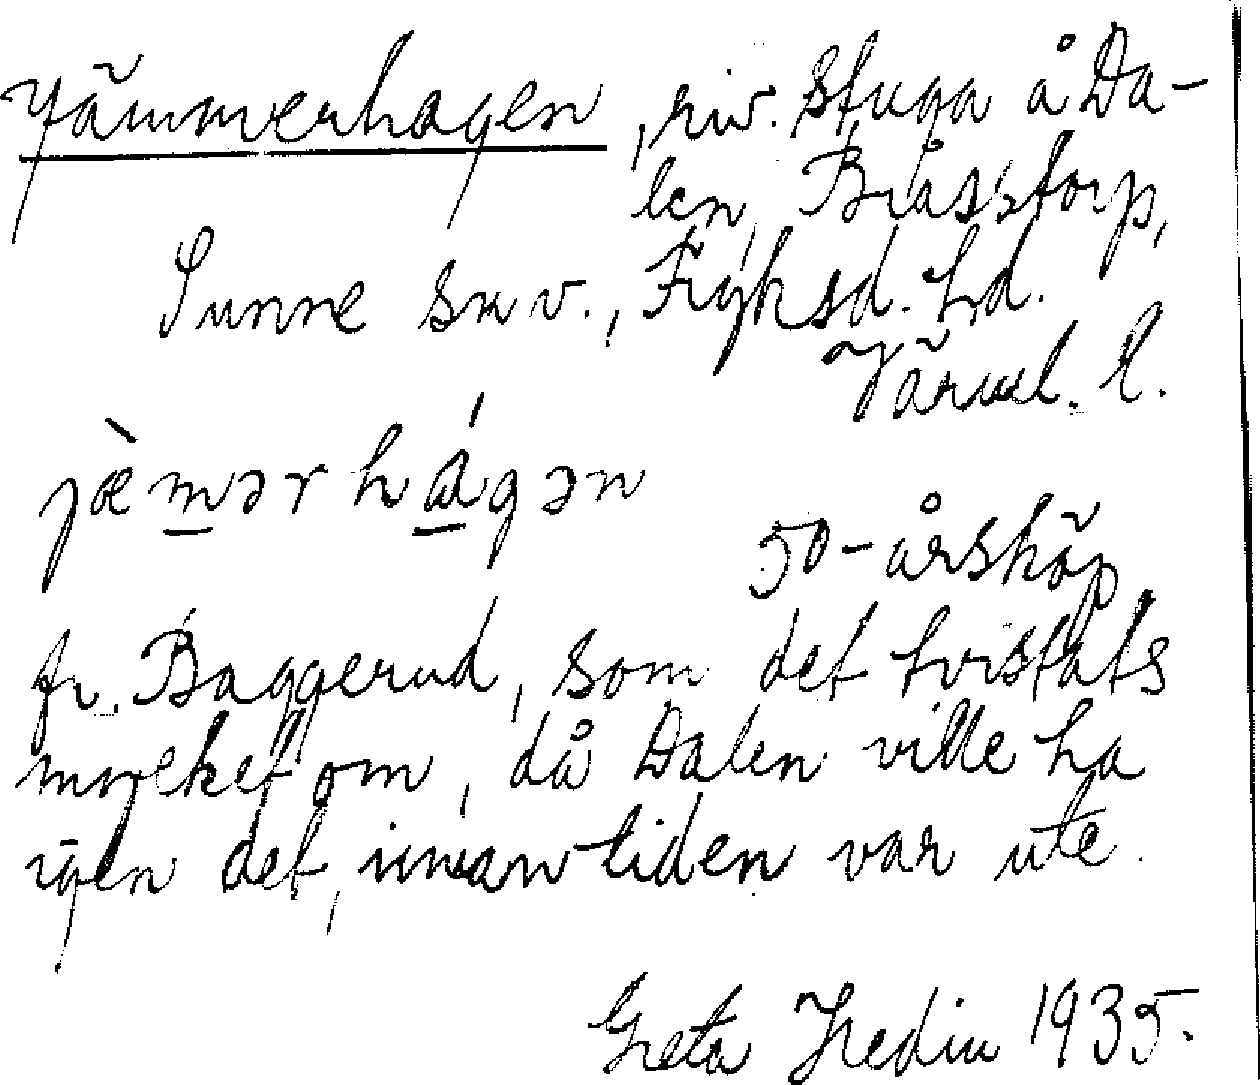 Jämmerhagen, riv. stuga å Da-
len, Bråsstorp,
Sunne snv., Fryksd. hd.
Värml. l.
jæ̀mərhágən
50-årsköp
fr. Baggerud, som det tvistats
mycket om, då Dalen ville ha
igen det, innan tiden var ute.
Greta Hedin 1935.